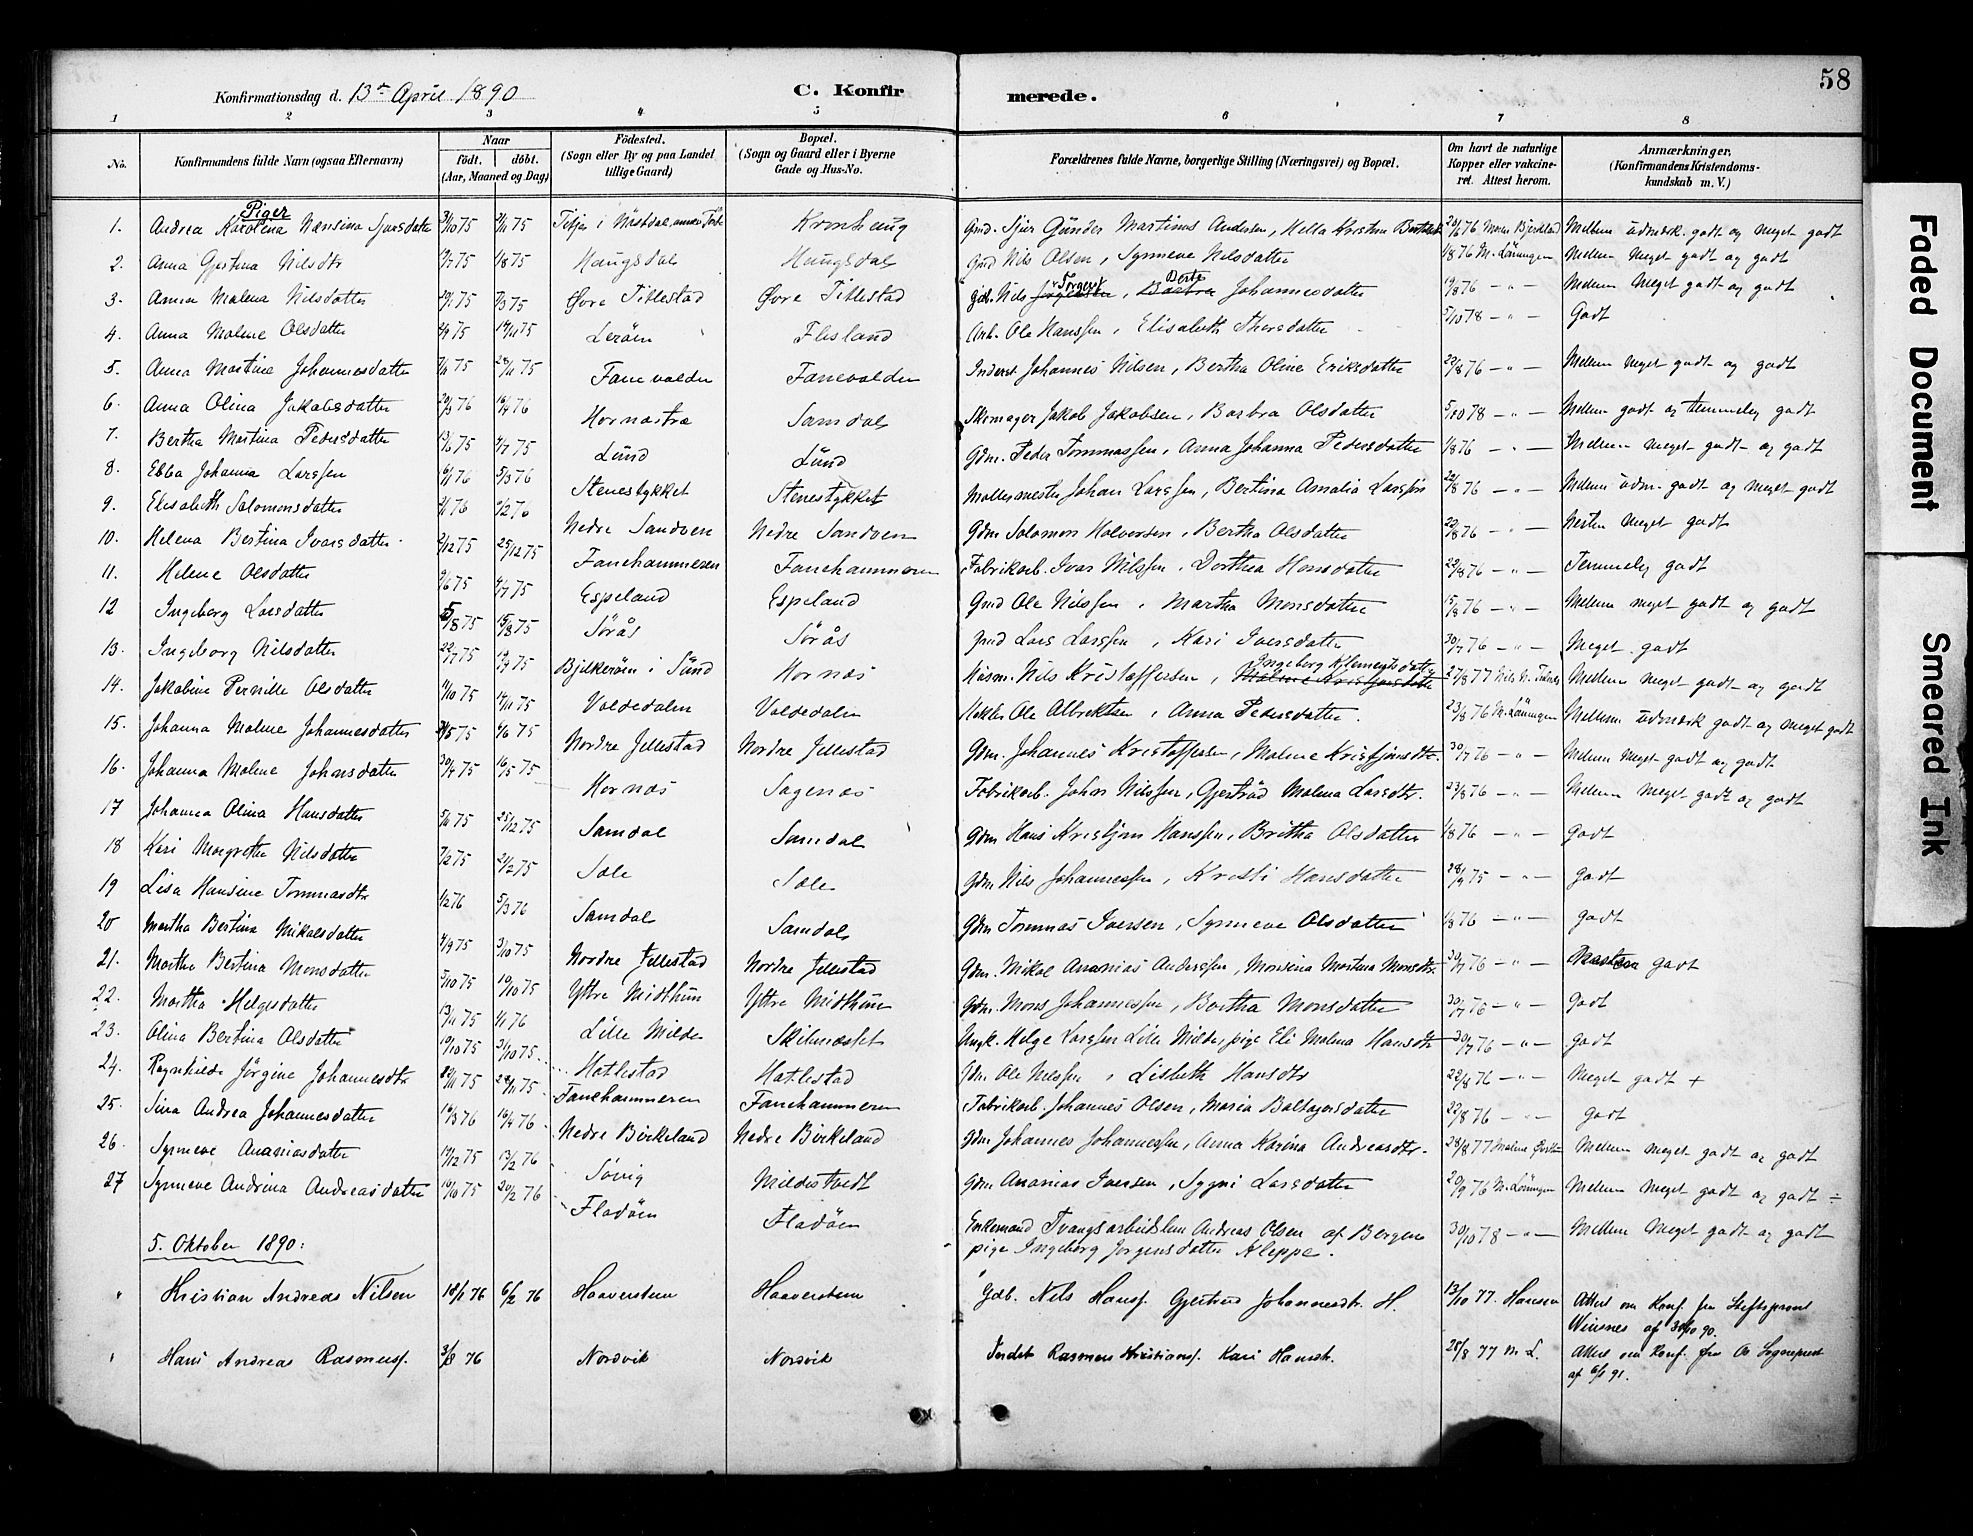 58
Konfirmationsdag d. 13de April 1890
C. Konfirmerede.
1 2 3 4 5 6 7 8
No.
Konfirmandens fulde Navn (ogsaa Efternavn)
Naar
født. døbt.
(Aar, Maaned og Dag)
Fødested.
(Sogn eller By og paa Landet tillige Gaard)
Bopæl.
(Sogn og Gaard eller i Byerne Gade og Hus-No.
Forældrenes fulde Navne, borgerlige Stilling (Næringsvei) og Bopæl.
Om havt de naturlige Kopper eller vakcineret. Attest herom.
Anmærkninger,
(Konfirmandens Kristendomskundskab m. V.)
Piger
1. Andrea Karolina Nænsina 75 75 Meget godt
2. Anna Gjertina Nilsdtr 75 1/8 75 Haugsdal Haugsdal Gmd Nils Olsen, Synneve Nilsdatter 1/8 76 M. Løningen Mellem meget godt og godt
3. Anna Malena Nilsdatter 75 75 Øvre Titlestad Øvre Titlestad Gdb. Nils Berte Johannesdatter 19/8 76 - " - Mellem Meget godt og godt
4. Anna Malene Olsdatter 75 75 Lerøen Flesland Arb. Ole Hanssen, Elisabeth 5/10 78 - " - Godt
5. Anna Martine Johannesdatter 75 28/11 75 Fanevolden Fanevolden Inderst Johannes Nilsen, Bertha Oline Eriksdatter 22/8 76 - " - Mellem Meget godt og godt
6. Anna Olina Jakobsdatter 76 16/4 76 Hornastræ Samdal Skomager Jakob Jakobsen, Barbra Olsdatter 5/10 78 - " - Mellem godt og temmelig godt
7. Bertha Martina Pedersdatter 75 4/7 75 Lund Lund Gdm. Peder Tommassen, Anna Johanna Pedersdatter 1/8 76 - " - Mellem meget godt og godt
8. Ebba Johanna Larssen 76 5/3 76 Stenestykket Stenestykket Møllermester Johan Larssen, Bertina Amalia Larssen 22/8 76 - " - Mellem udm. godt og meget godt
9. Elisabeth Salomonsdatter 76 76 Nedre Sandven Nedre Sandven Gdm Salomon Halvorsen, Bertha Olsdatter 22/8 76 - " - Nesten Meget godt
10. Helena Bertina Ivarsdatter 2/12 75 25/12 75 Fanehammeren Fanehammeren Fabrikarb. Ivar Nilssen, Dorthea Hansdatter 22/8 76 - " - Temmelig godt
11. Helene Olsdatter 9/6 75 4/7 75 Espeland Espeland Gmd Ole Nilssen, Martha Monsdatter 15/8 76 - " - Mellem meget godt og godt
12 Ingeborg Larsdatter 5/8 75 15/8 75 Sørås Sørås Gmd Lars Larssen, Kari Iversdatter 30/7 76 - " - Meget godt
13. Ingeborg Nilsdatter 22/7 75 75 Bjelkerøen i Sund Hornæs Husm. Nils Kristoffersen, Ingeborg Klemetsdatter 27/8 77 Mellem meget godt og godt
14. Jakobine Pernille Olsdatter 75 14/11 75 Valdedalen Valdedalen Ole Albriktsen, Anna Pedersdatter. 23/8 76 M. Løningen Mellem udmærk godt og meget godt
15. Johanna Malene Johannesdatter 75 6/6 75 Nordre Jellestad Nordre Jellestad Gdm. Johannes Kristoffersen, Malene Kristjansdtr. 30/7 76 - " - Mellem Meget godt og godt
16. Johanna Malene Johnsdatter 30/4 75 16/5 75 Hornæs Sagenæs Fabrikarb. John Nilssen, Gjertrud Malena Larsdtr. 23/8 76 - " - Mellem Meget godt og godt
17 Johanna Olina Hansdatter 5/11 75 25/12 75 Samdal Samdal Gdm Hans Kristjan Hanssen, Britha Olsdatter 1/8 76 - " - Godt
18 Kari Margrethe Nilsdatter 7/2 75 21/2 75 Sole Sole Gdm Nils Johannessen, Kristi Hansdatter 28/9 75 - " - Godt
19 Lisa Hansine Tommasdtr 1/2 76 5/3 76 Samdal Samdal Gdm Tommas Iversen, Synneve Olsdatter 1/8 76 - " - Godt
20 Martha Bertina Mikalsdatter 4/9 75 3/10 75 Nordre Jellestad Nordre Jellestad Gdm. Mikal Ananias Anderssen, Monsina Martina Monsdtr. 30/7 76 - " - godt
21. Marthe Bertina Monsdatter 5/10 75 10/10 75 Yttre Midthun Yttre Midthun Gdm. Mons Johannessen, Bertha Monsdatter 30/7 76 - " - Godt
22. Martha Helgesdatter 13/11 75 1/1 76 Lille Milde Skilnæsset Ungk. Helge Larssen Lille Milde, pige Eli Malena Hansdtr 30/7 76 - " - Godt
23. Olina Bertina Olsdatter 19/10 75 31/10 75 Hatlestad Hatlestad Gdm Ole Nilssen, Lisbeth Hansdtr 22/8 76 - " - Meget godt +
24. Ragnhilde Jørgine Johannesdtr 12/11 75 28/11 75 Fanehammeren Fanehammeren Fabrikarb. Johannes Olsen, Maria Baltazersdatter 22/8 76 - " - Godt
25. Sina Andrea Johannesdatter 16/3 76 16/4 76 Nedre Birkeland Nedre Birkeland Gdm Johannes Johannessen, Anna Karina Andreasdtr. 28/8 77 Mellem meget godt og godt
26. Synneve Ananiasdatter 19/12 75 13/2 76 Søvig Mildestvedt Gdm Ananias Iversen, Sygni Larsdatter 20/9 76 M. Løningen Mellem Meget godt og godt ÷
27 Synneve Andrina Andreasdatter 10/10 75 20/2 76 Fladøen Fladøen Enkemand Tvangsarbeidslem Andreas Olsen af Bergen pige Ingeborg Jørgensdatter Kleppe. 30/10 78 - " - Mellem Meget godt og godt
5. Oktober 1890:
" Kristian Andreas Nilsen 18/1 76 6/2 76 Haaverstein Haaverstein Gdb. Nils Hansf. Gjertrud Johannesdtr. H. 13/10 77. Hansen Attest om Konf. fra Stiftsprovst Winsnes af 31/10 90.
" Hans Andreas Rasmusf. 3/8 76 Nordvik Nordvik Inderst Rasmus Kristiansf. Kari Hansdr. 28/8 77 M. L. Attest om Konf. fra Os Sogneprest af 6/1 91.
Faded Document
Smeared Ink